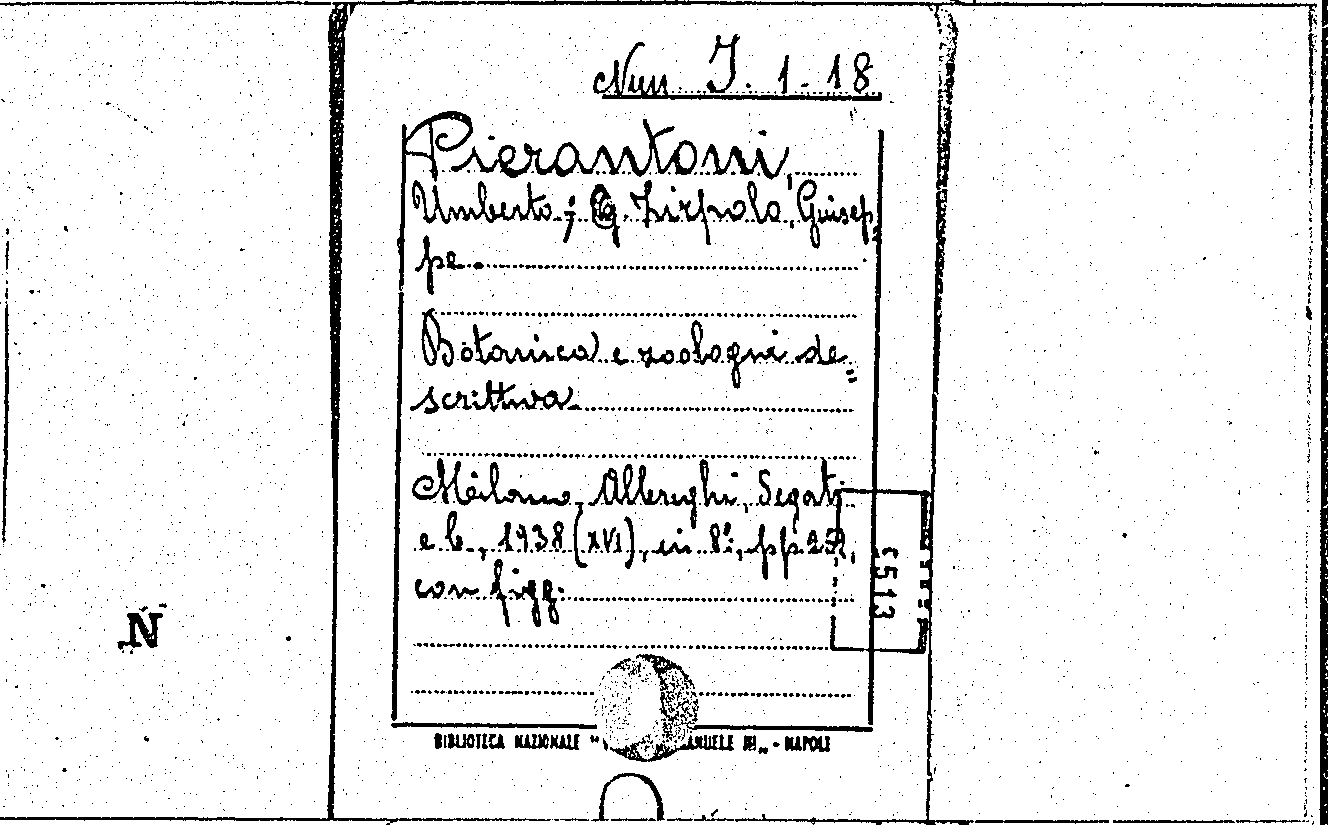 Nun J. 1. 18
Pierantoni,
Umberto; e Zirpolo, Giusep„
pe.
Botanica e zoologni de„
scrittiva.
Milano, Allerighi, Segati
e C., 1938 (XVI), in 8º, pp.
con figg.
5513
N
BIBLIOTECA NAZIONALE " ANUELE III„ - NAPOLI